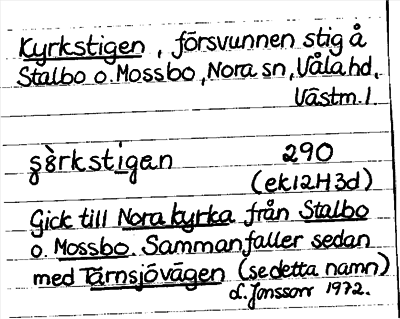 Kyrkstigen, försvunnen stig å
Stalbo o. Mossbo, Nora sn, Våla hd,
Västm. l.
290
(ek12H3d)
Gick till Nora kyrka från Stalbo
o. Mossbo. Sammanfaller sedan
med Tärnsjövägen (se detta namn)
L. Jonsson 1972.